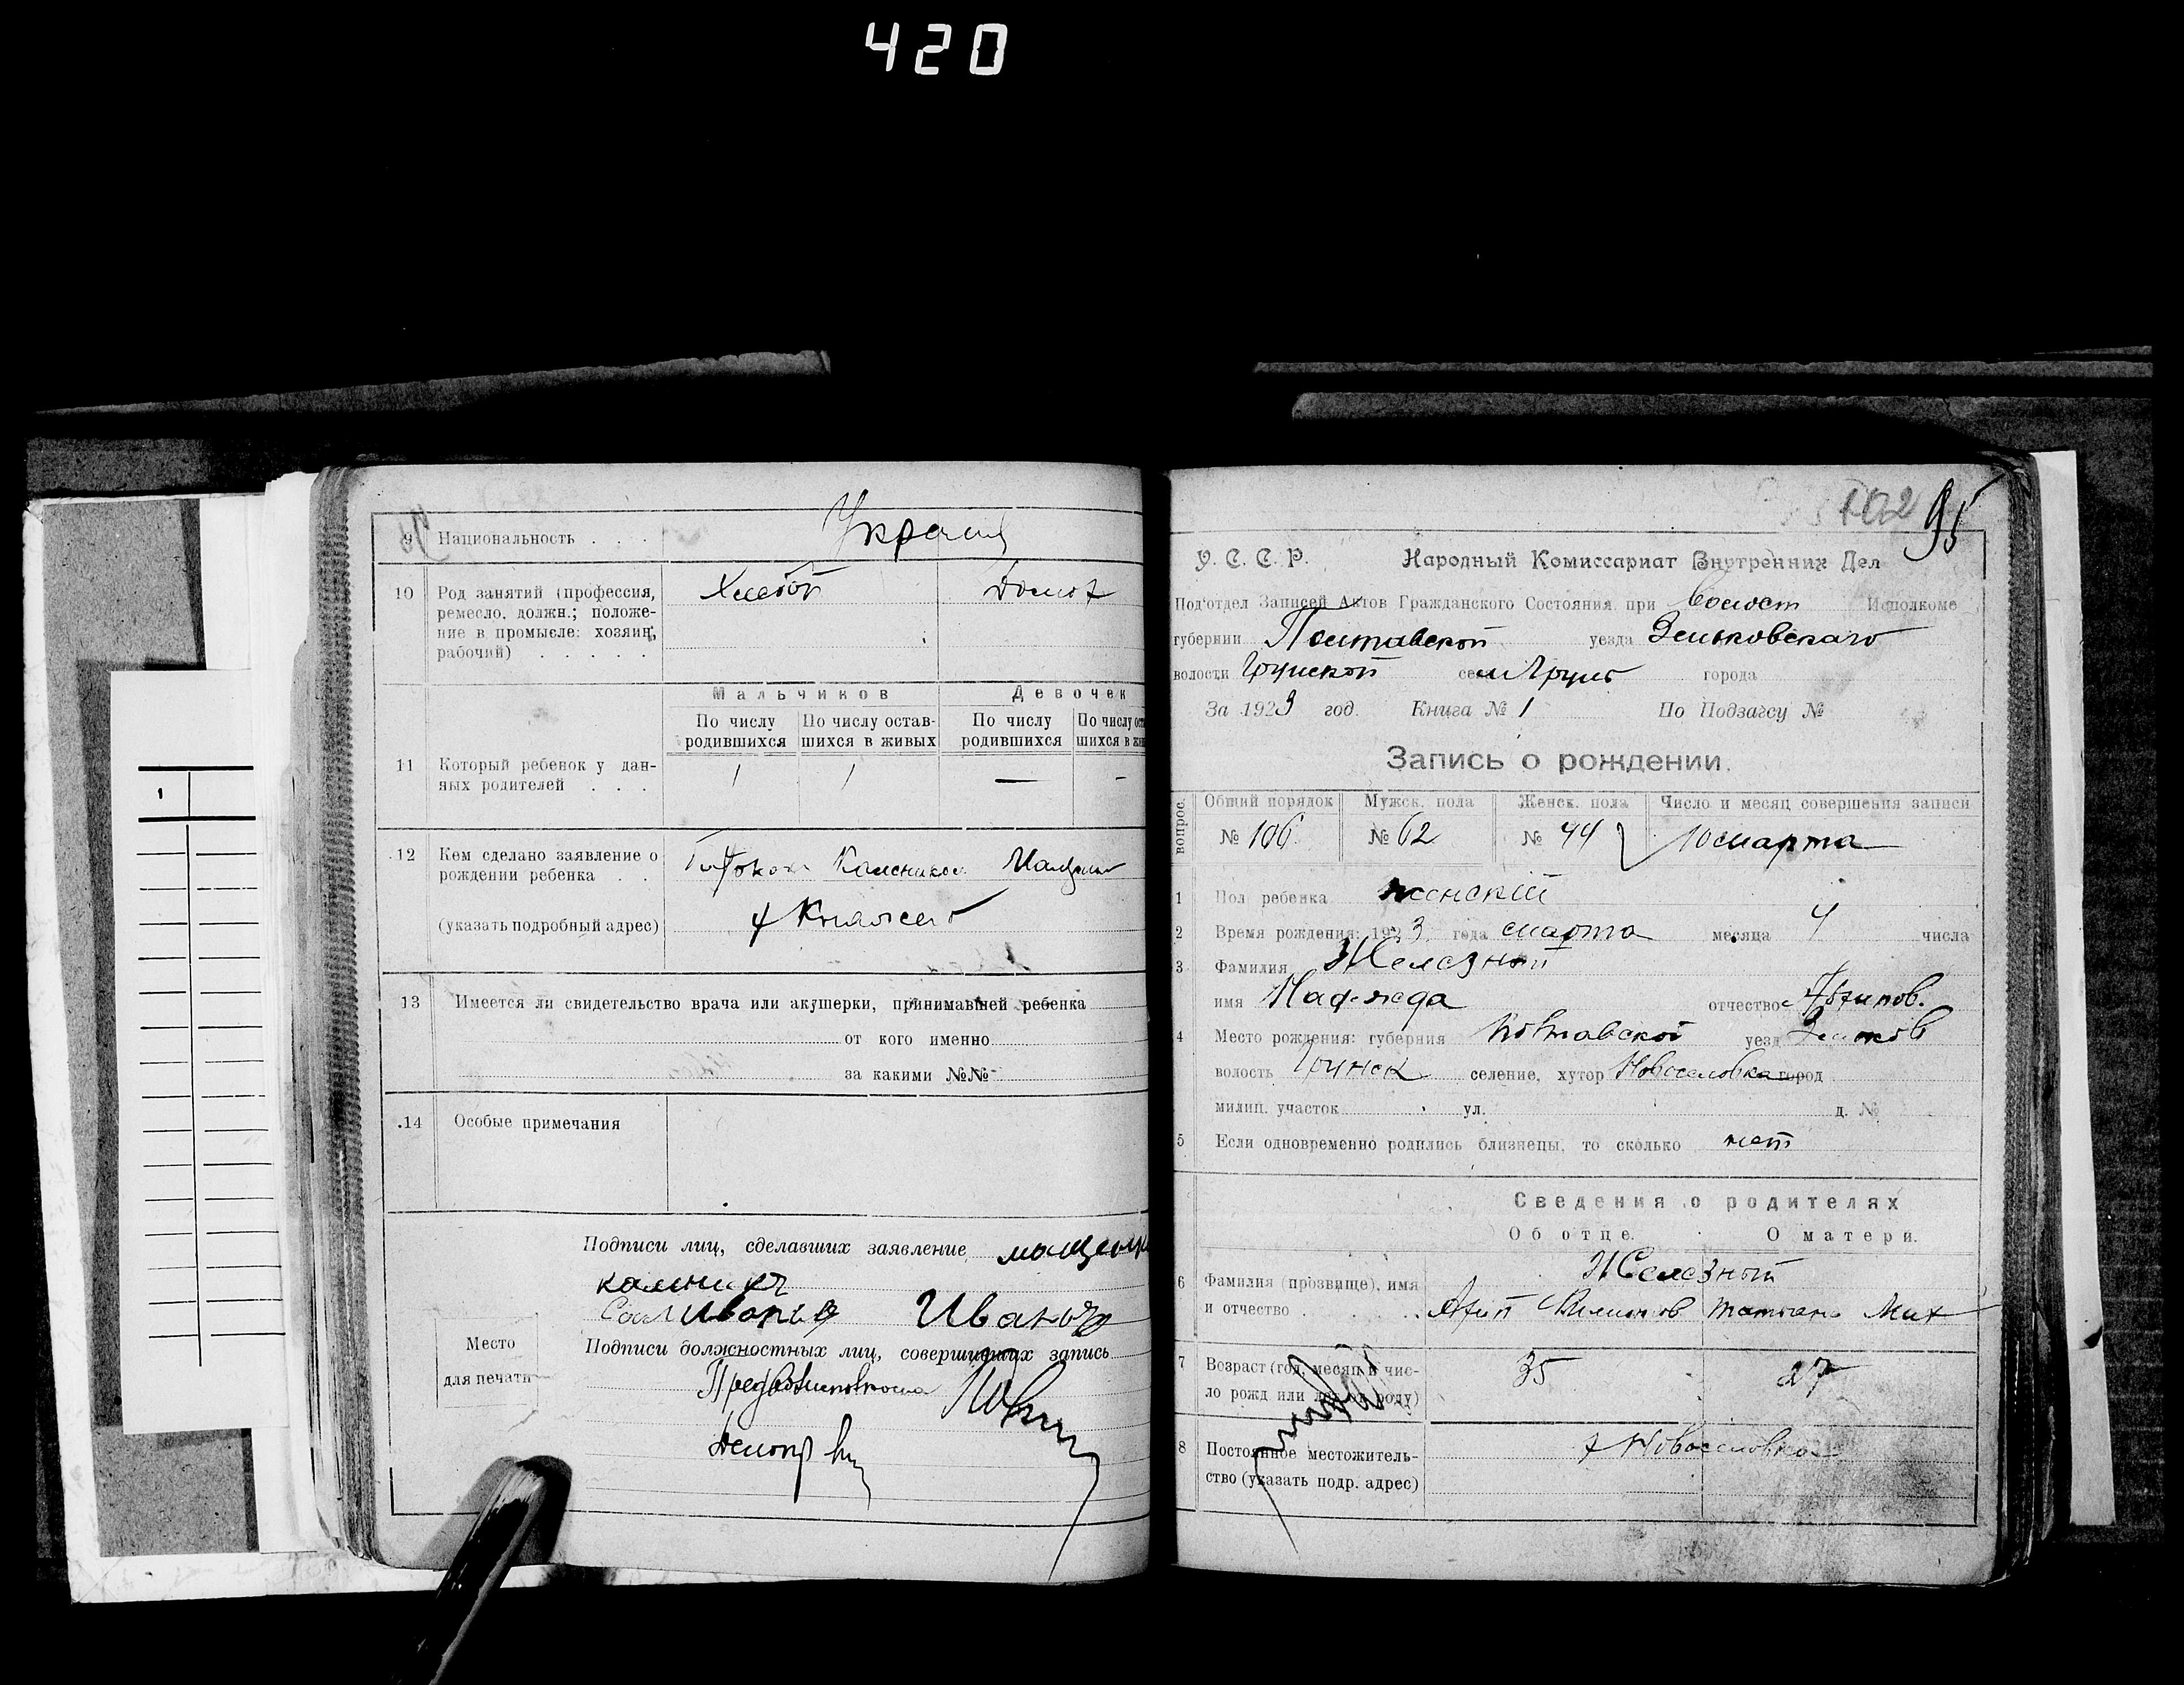 420
9 Национальность . . . Украин
10 Род занятий (профессия, Хлебоп Домох
ремесло, должн.; положе-
ние в промысле: хозяин,
рабочий) . . . . .
Мальчиков Девочек
По числу родившихся По числу остав-шихся в живых По числу родившихся По числу
11 Который ребенок у дан- 1 1 — -
ных родителей . . .
12 Кем сделано заявление о
рождении ребенка . .
(указать подробный адрес)
13 Имеется ли свидетельство врача или акушерки, принимавшей ребенка
от кого именно
за какими №№ -
14 Особые примечания
Подписи лиц, сделавших заявление
Место
для печати
Подписи должностных лиц, совершивших запись
102 95
У. С. С. Р. Народный Комиссариат Внутренних Дел
Под'отдел Записей Актов Гражданского Состояния при Волост Исполкоме
губернии Полтавской уезда Зеньковскаго
волости Грунской села Грунь города
За 1923 год. Книга № 1 По Подзагсу №
Запись о рождении.
вопрос. Общий порядок Мужск. пола Женск. пола Число и месяц совершения записи
№ 106 № 62 № 44 10 марта
1 Пол ребенка женский
2 Время рождения: 1923 года марта месяца 4 числа
3 Фамилия Железный
имя Надежда отчество
4 Место рождения: губерния Полтавской уезд Зеньков
волость Грунск селение, хутор Новоселовка город
милиц. участок ул. д. №
5 Если одновременно родились близнецы, то сколько нет
Сведения о родителях
Об отце. О матери.
6 Фамилия (прозвище), имя Железный
и отчество . . . Татьяна Мих
7 Возраст (год, месяц и чис- 35 27
ло рожд или
8 Постоянное местожитель- х Новоселовка
ство (указать подр. адрес)
1